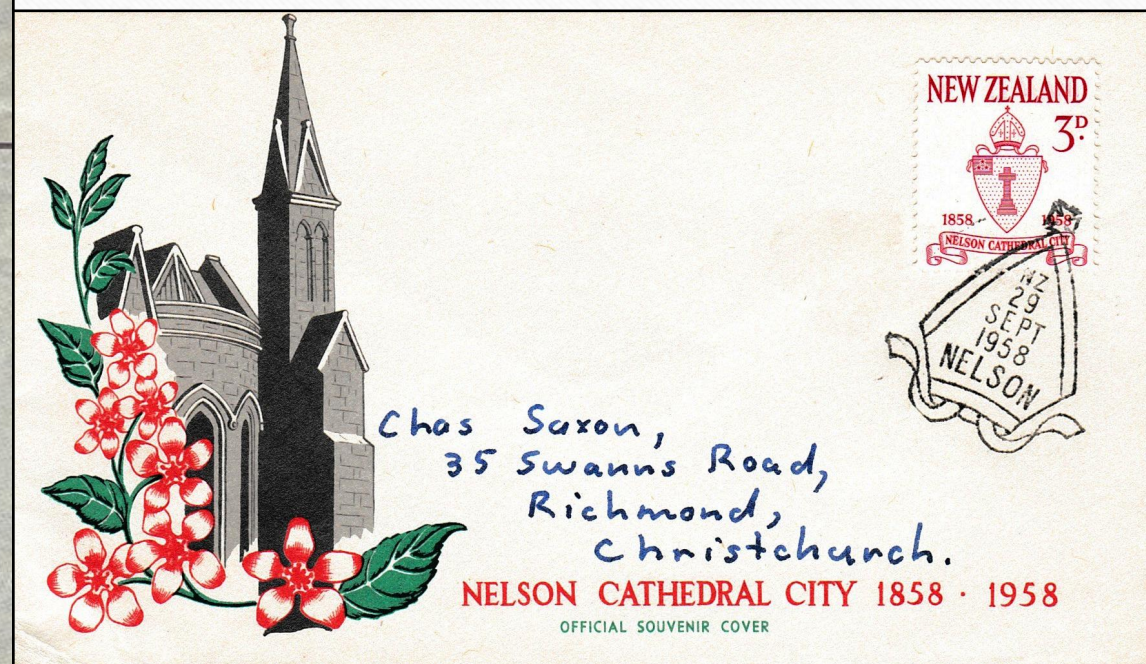 NEW ZEALAND
3D.
1858 1958
NELSON CATHEDRAL CITY
NZ
29
SEPT
1958
NELSON
Chas Saxon,
35 Swanns Road,
Richmond,
Christchurch.
NELSON CATHEDRAL CITY 1858 · 1958
OFFICIAL SOUVENIR COVER